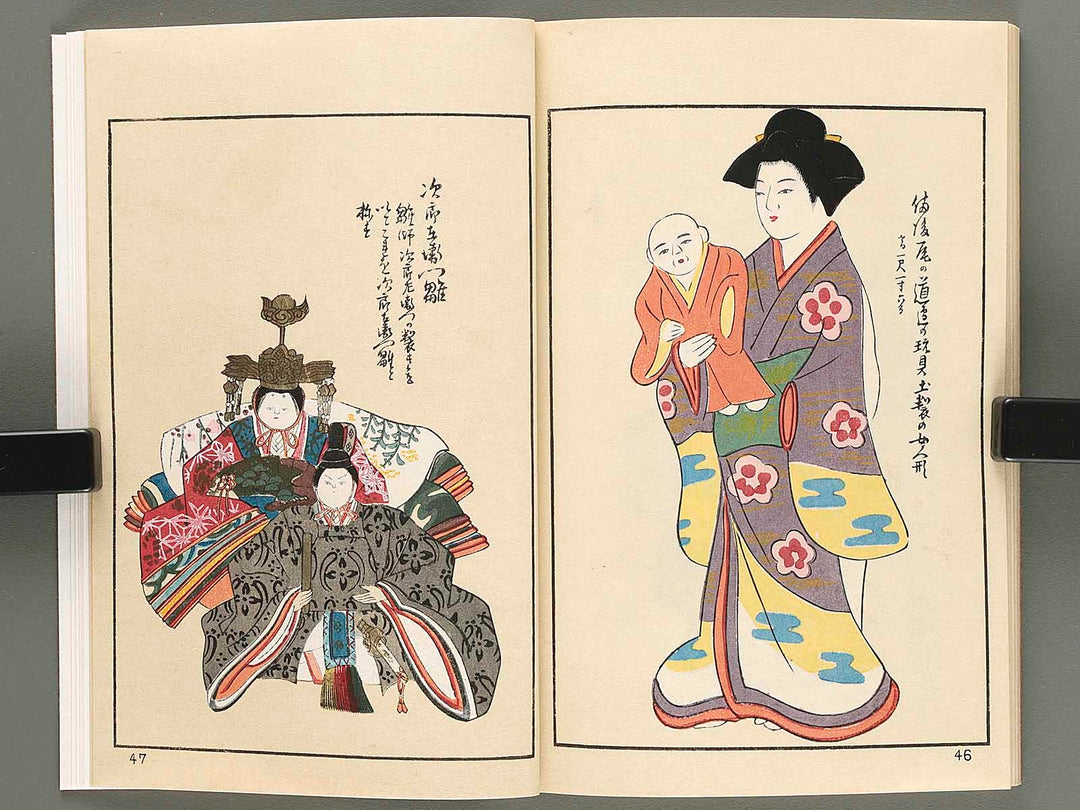 備後尾の道邊の玩具土製の女人形
一尺一寸
46
次郎左衛門雛
雛師次郎左衛門の製するを
以てこれを次郎左衛門雛と
称す
47